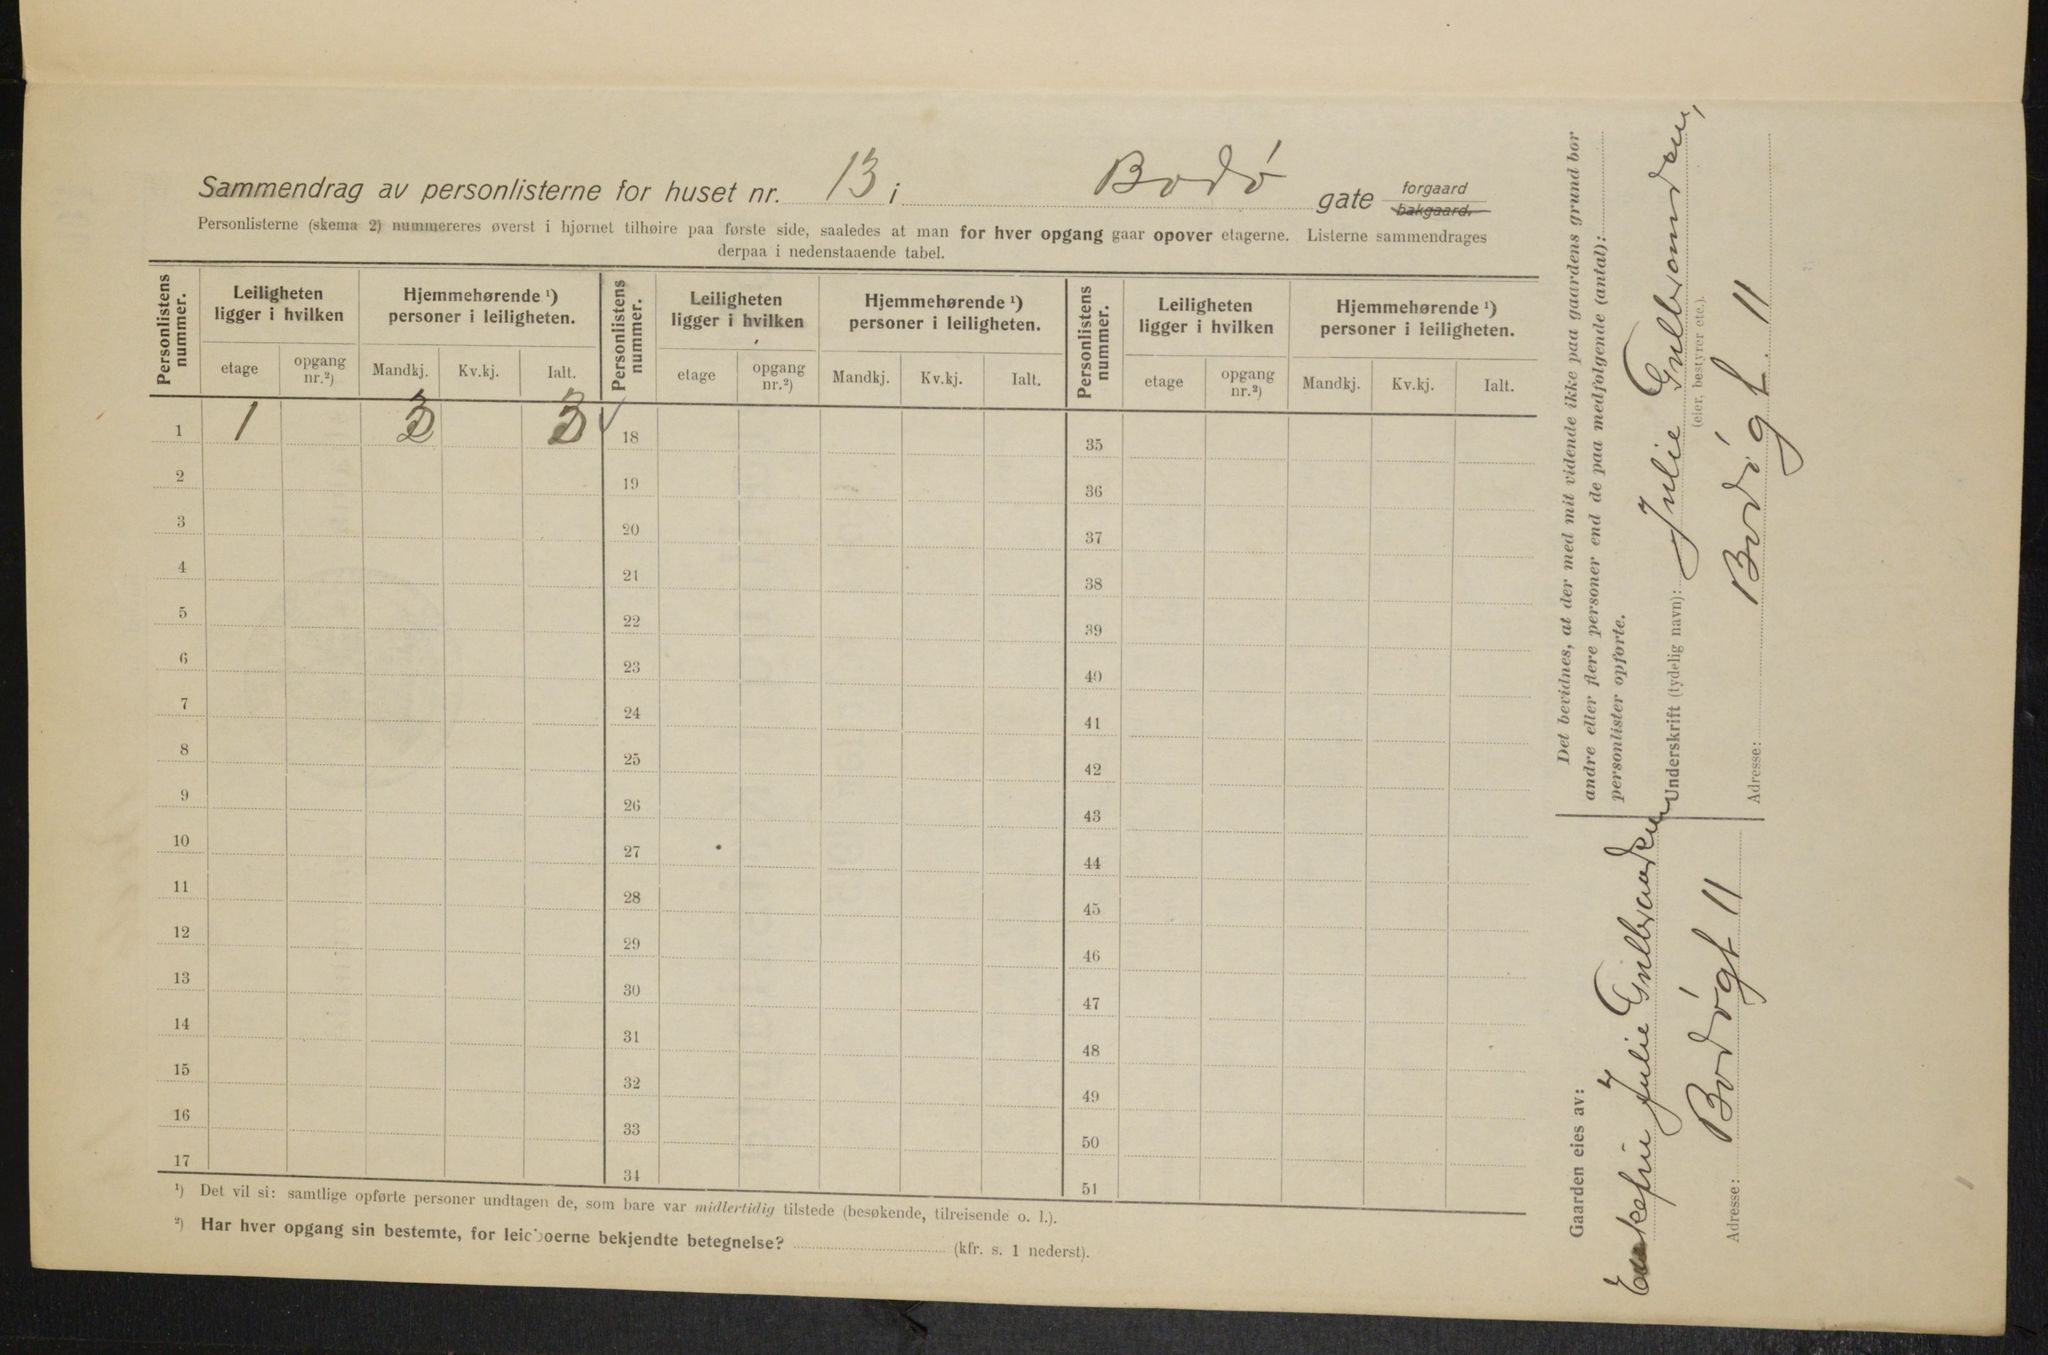 Sammendrag av personlisterne for huset nr. 13 i Bodø gate forgaard bakgaard.
Personlisterne (skema 2) nummereres øverst i hjørnet tilhøire paa første side, saaledes at man for hver opgang gaar opover etagerne. Listerne sammendrages
derpaa i nedenstaaende tabel.
Personlistens nummer. Leiligheten ligger i hvilken Hjemmehørende ¹) personer i leiligheten. Personlistens nummer. Leiligheten ligger i hvilken Hjemmehørende ¹) personer i leiligheten. Personlistens nummer. Leiligheten ligger i hvilken Hjemmehørende ¹) personer i leiligheten.
etage opgang nr.²) Mandkj. Kv.kj. Ialt. etage opgang nr.²) Mandkj. Kv.kj. Ialt. etage opgang nr.²) Mandkj. Kv.kj. Ialt.
1 1 3 3 18 35
2 19 36
3 20 37
4 21 38
5 22 39
6 23 40
7 24 41
8 25 42
9 26 43
10 27 44
11 28 45
12 29 46
13 30 47
14 31 48
15 32 49
16 33 50
17 34 51
¹) Det vil si: samtlige opførte personer undtagen de, som bare var midlertidig tilstede (besøkende, tilreisende o. l.).
²) Har hver opgang sin bestemte, for leieboerne bekjendte betegnelse? (kfr. s. 1 nederst).
Gaarden eies av:
Enkefru Julie Gulbrandsen
Adresse: Bodøgt 11
Det bevidnes, at der med mit vidende ikke paa gaardens grund bor
andre eller flere personer end de paa medfølgende (antal):
personlister opførte.
Underskrift (tydelig navn): Julie Gulbrandsen,
(eier, bestyrer etc.).
Adresse: Bodøgt. 11